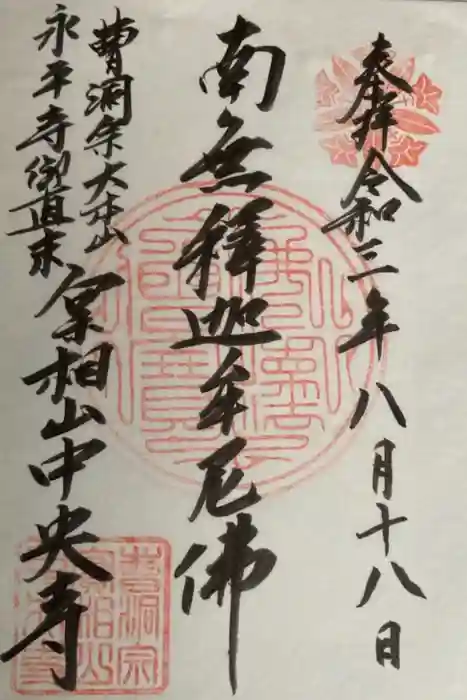 奉拝 令和三年八月十八日
南無釋迦牟尼佛
曹洞宗大本山
永平寺御直末
宲相山中央寺
佛法
僧寶
曹洞宗